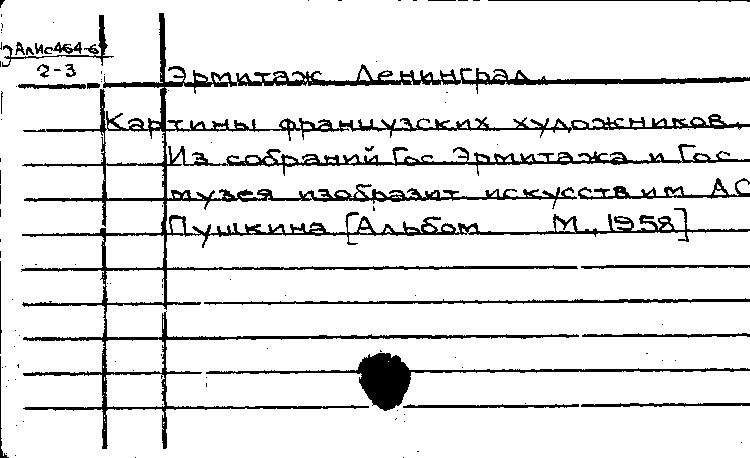 ЭАлИс464-6
2-3
Эрмитаж Ленинград.
Картины французских художников.
Из собраний Гос Эрмитажа и Гос
музея изобразит искусств им АС
Пушкина [Альбом М., 1958]